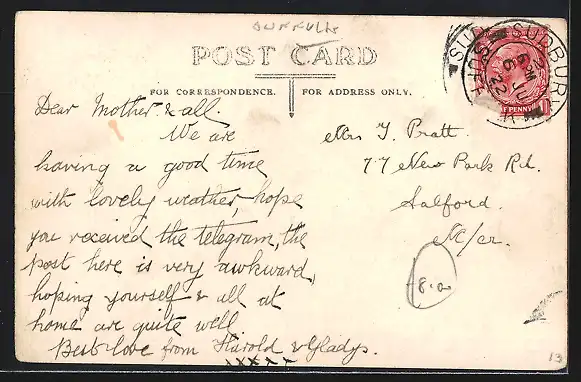 SUFFOLK
POST CARD
FOR CORRESPONDENCE.
FOR ADDRESS ONLY.
Dear Mother & all.
We are
having a good time
with lovely weather, hope
you received the telegram, the
post here is very awkward,
hoping yourself & all at
home are quite well
Best love from Harold & Gladys.
xxxxx
Mrs T. Pratt.
77 New Park Rd.
Salford.
M/cr.
SUDBURY
6 PM
JU
22
PENNY
8.00
13